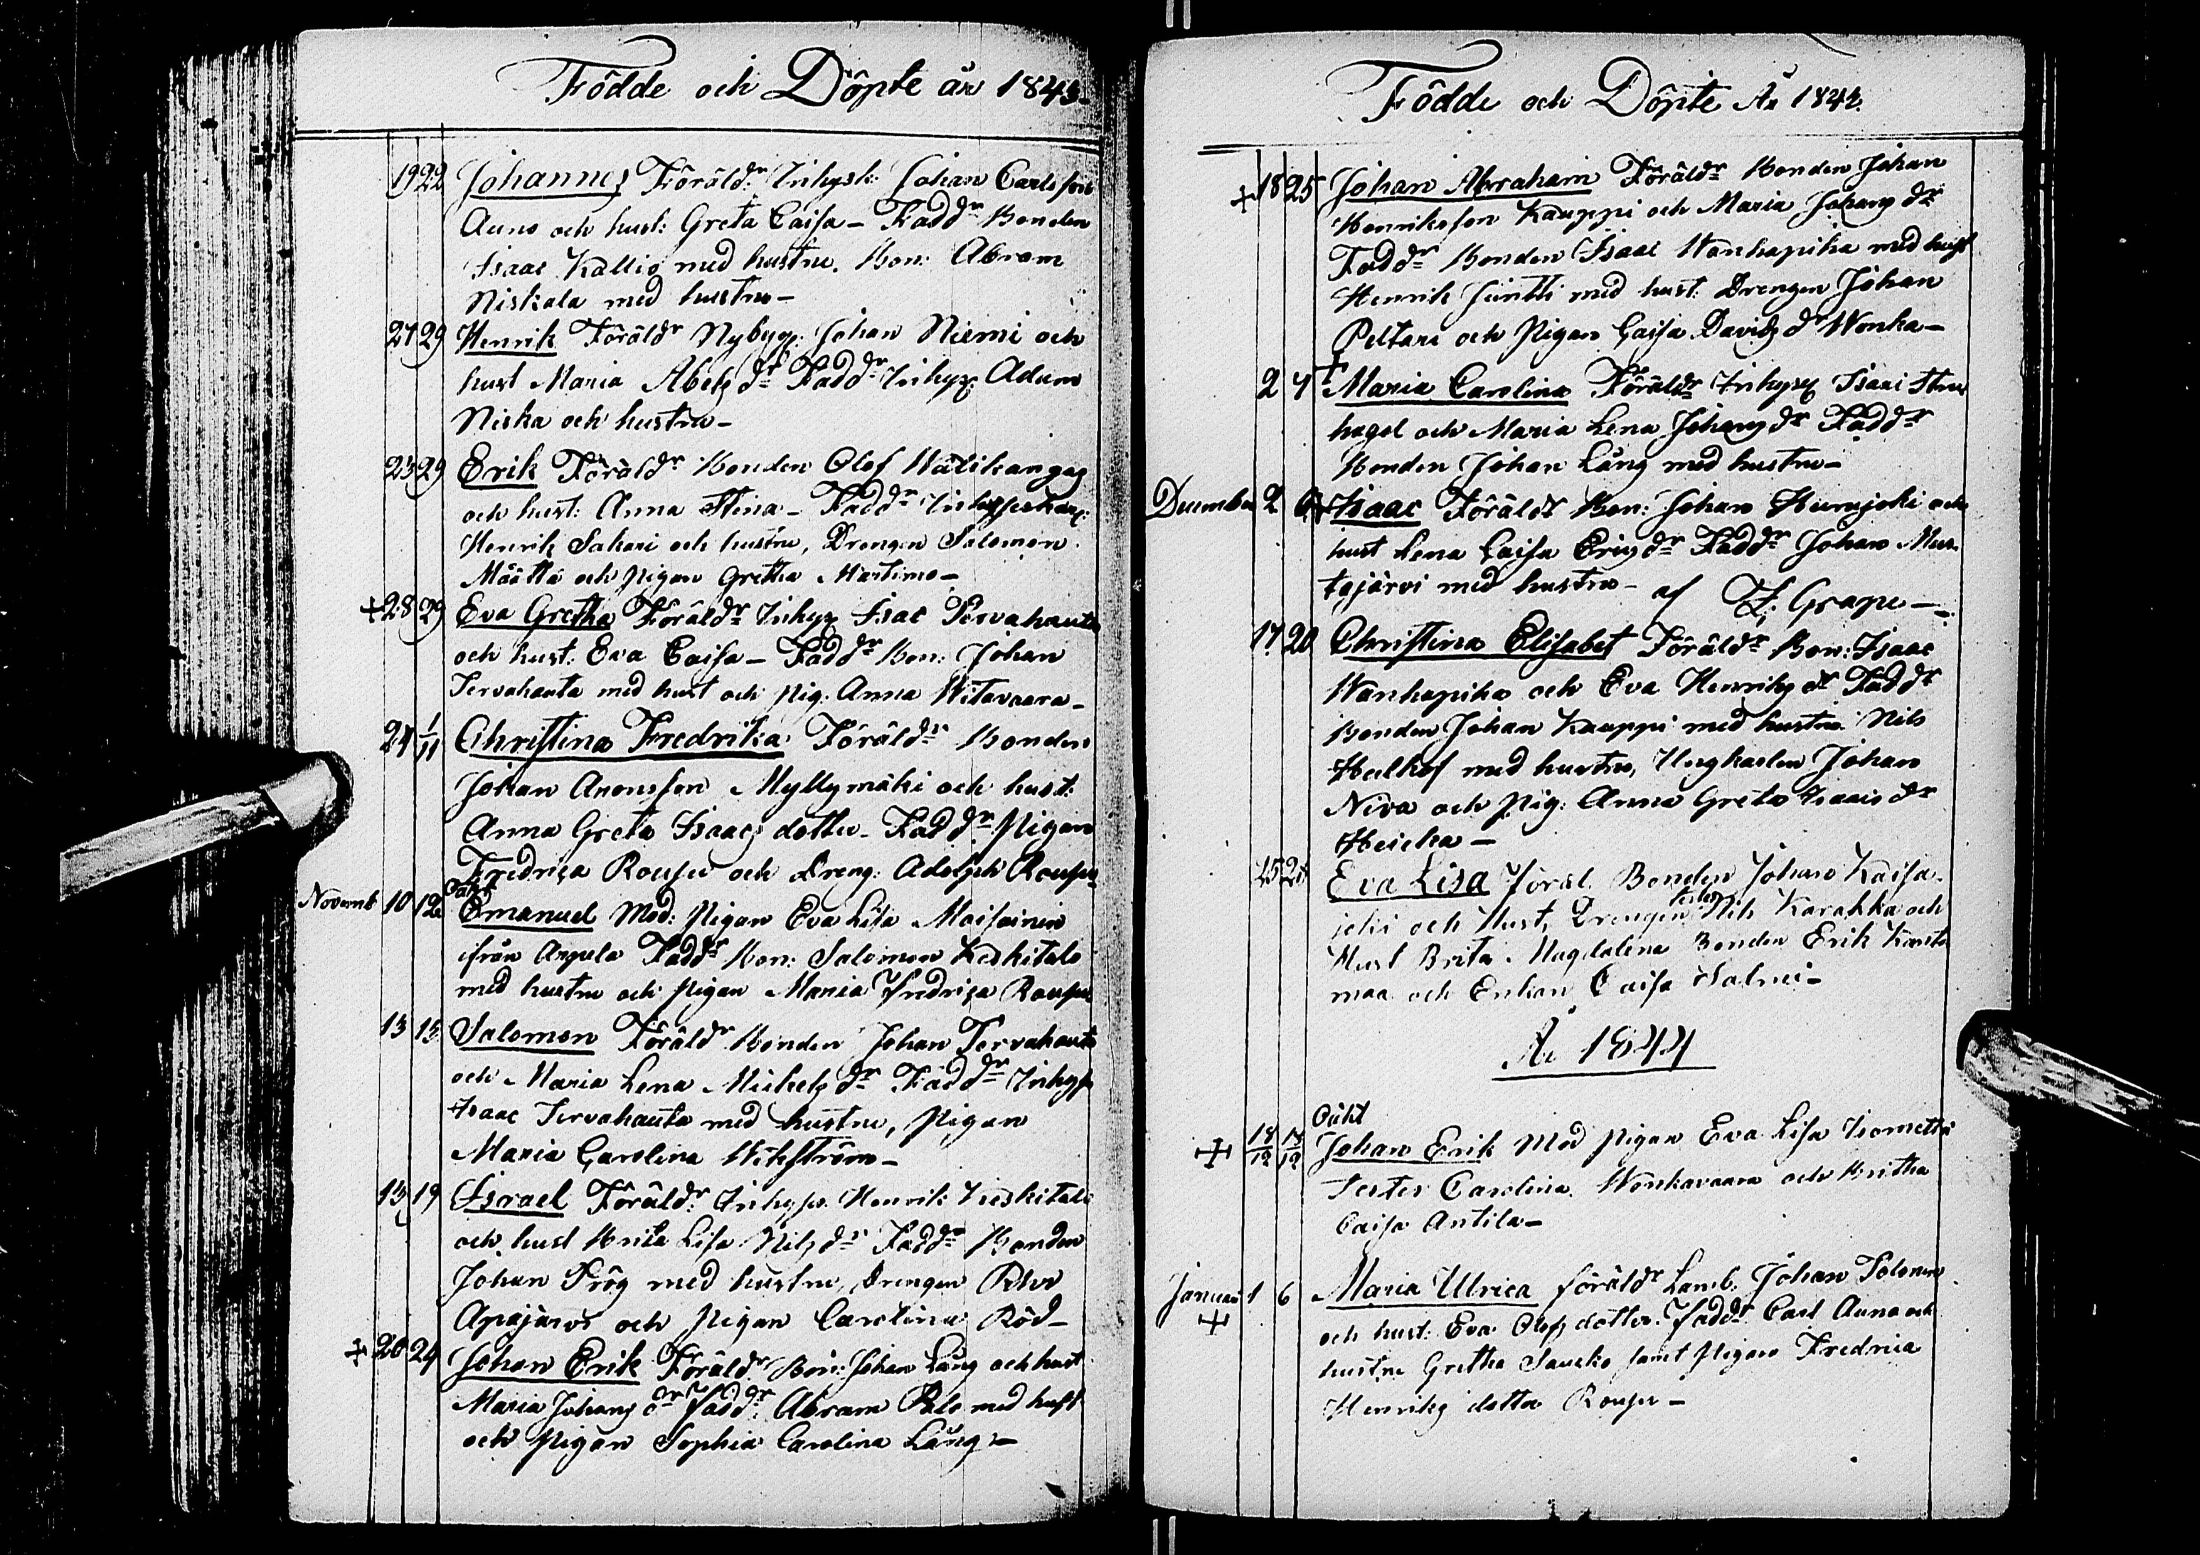 Födde och Döpte år 1843.
19 22 Johannes Föräld:r Inhys: Johan Carlsson
Auno och hust: Greta Caisa – Faddr Bonden
Isaac Kallio med hustru. Bon: Abram
Niskala med hustru –
27 29 Henrik Föräldr Nybyg: Johan Niemi och
hust Maria Abels dr Faddr Inhys: Adam
Niska och hustru –
23 29 Erik Föräldr Bonden Olof Wälikangas
och hust: Anna Stina – Faddr
Henrik Sakari och hustru, Drengen Salomon
Määttä och Pigan Gretha Martimo –
+ 28 29 Eva Gretha Föräldr Inhys Isac Tervahauta
och hust: Eva Caisa – Faddr Bon: Johan
Tervahauta med hust och Pig: Anna Witavaara –
24 1/11 Christina Fredrika Föräldr Bonden
Johan Aronsson Myllymäki och hust:
Anna Greta Isaacs dotter – Faddr Pigan
Fredrica Roupu och Dreng: Adolph Roupu
Novemb 10 12 Oäkt
Emanuel Mod: Pigan Eva Lisa Moisainen
ifrån Faddr Bon: Salomon Keskitalo
med hustru och Pigan Maria Fredrica Roupu
13 13 Salomon Föräldr Bonden Johan Tervahauta
och Maria Lena Michels dr Faddr Inhys
Isaac Tervahauta med hustru, Pigan
Maria Carolina Wikström –
13 19 Israel Föräld:r Inhys: Henrik Keskitalo
och hust Brita Lisa Nils dr Faddr Bonden
Johan Frög med hustru, Drengen
Apajarvi och Pigan Carolina Röd –
+ 20 24 Johan Erik Föräldr Bon: Johan Lång och hust
Maria Johans dr Faddr Abram Palo med hust
och Pigan Sophia Carolina Lång –
Födde och Döpte År 1843.
+ 18 25 Johan Abraham Föräldr Bonden Johan
Henriksson Kauppi och Maria Johans dr
Faddr Bonden Isaac Wanhapiha med hust
Henrik Juntti med hust: Drengen Johan
Peltari och Pigan Caisa Davids dr Wonka –
2 4 + Maria Carolina Föräldr Inhys Isaac Stru
hagel och Maria Lena Johans dr Faddr
Bonden Johan Lång med hustru –
December 2 Isaac Föräldr Bon: Johan Hurujoki och
hust Lena Caisa Erics dr Faddr Johan Mus
tajärvi med hustru – af Z. Grape –
17 20 Christina Elisabet Föräldr Bon: Isaac
Wanhapiha och Eva Henriks dr Faddr
Bonden Johan Kauppi med hustru Nils
Heikkof med hustru, Ungkarlen Johan
Niva och Pig: Anna Greta Isaacs dr
Heicka –
25 Eva Lisa Föräl. Bonden Johan Kaisa
joki och Hust, Testes Drengen Nils Karakka och
Hust Brita Magdalena Bonden Erik Kanto
maa och Enkan Caisa Salmi –
År 1844
Oäkt
+ 18/12 18/12 Johan Erik Mod Pigan Eva Lisa Isometti
Testes Carolina Wonkavaara och Britha
Caisa Antila –
Januari 1 6 Maria Ulrica föräldr Landb: Johan Tolonen
+ och hust: Eva Olofs dotter. Faddr Carl Auna och
hustru Gretha Saucko samt Pigan Fredrica
Henriks dotter Roupu –